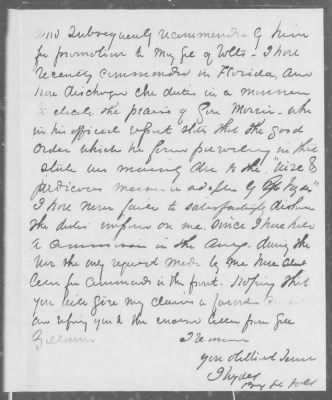 and subsequently recommended by him
for promotion to Maj Ge of Vols - I have
recently commanded in Florida, and
have discharged the duties in a manner
to elicit the praise of Gen - who
in his official report states that the good
order which he found prevailing in this
State was mainly due to the "wise &
judicious measures adopted by
I have never failed to satisfactorily discharge
the duties imposed on me. Since I have held
a commission in the Army. during the
War the only request made by me have
been for commands in the front. Hoping that
you will give my claims a favorable
and refering you to the enclosed letter from Gen
I remain
your obedient Servt
Brig Ge Vols